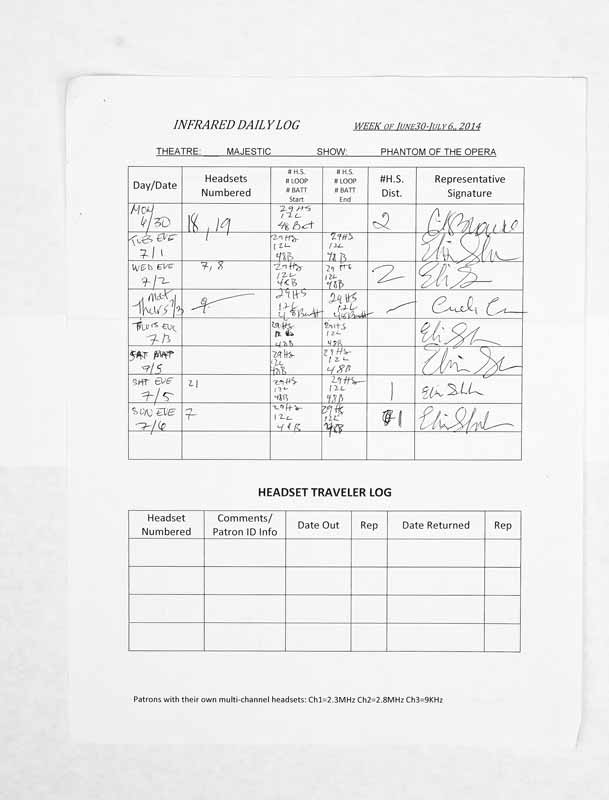 INFRARED DAILY LOG WEEK OF JUNE30-JULY 6,, 2014
THEATRE: ___ MAJESTIC SHOW: PHANTOM OF THE OPERA
Day/Date
Headsets
Numbered
# H.S.
# LOOP
# BATT
Start
# H.S.
# LOOP
# BATT
End
#H.S.
Dist.
Representative
Signature
MON
6/30
18, 19
29HS
12L
48 Bat
2
TUES EVE
7/1
29HS
12L
48B
29HS
12L
48 B
WED EVE
7/2
7, 8
29HS
12L
48B
29 HS
12L
48B
2
Mat
Thurs 7/3
9
29HS
12L
48Batt
29HS
12L
48Batt
—
THURS EVE
7/3
29HS
48B
29HS
12L
48B
SAT MAT
7/5
29HS
12L
48B
29HS
12L
48B
SAT EVE
7/5
21
29HS
12L
48B
29HS
12L
48B
1
SUN EVE
7/6
7
29HS
12L
48B
29HS
12L
48B
1
HEADSET TRAVELER LOG
Headset
Numbered
Comments/
Patron ID Info
Date Out
Rep
Date Returned
Rep
Patrons with their own multi-channel headsets: Ch1=2.3MHz Ch2=2.8MHz Ch3=9KHz